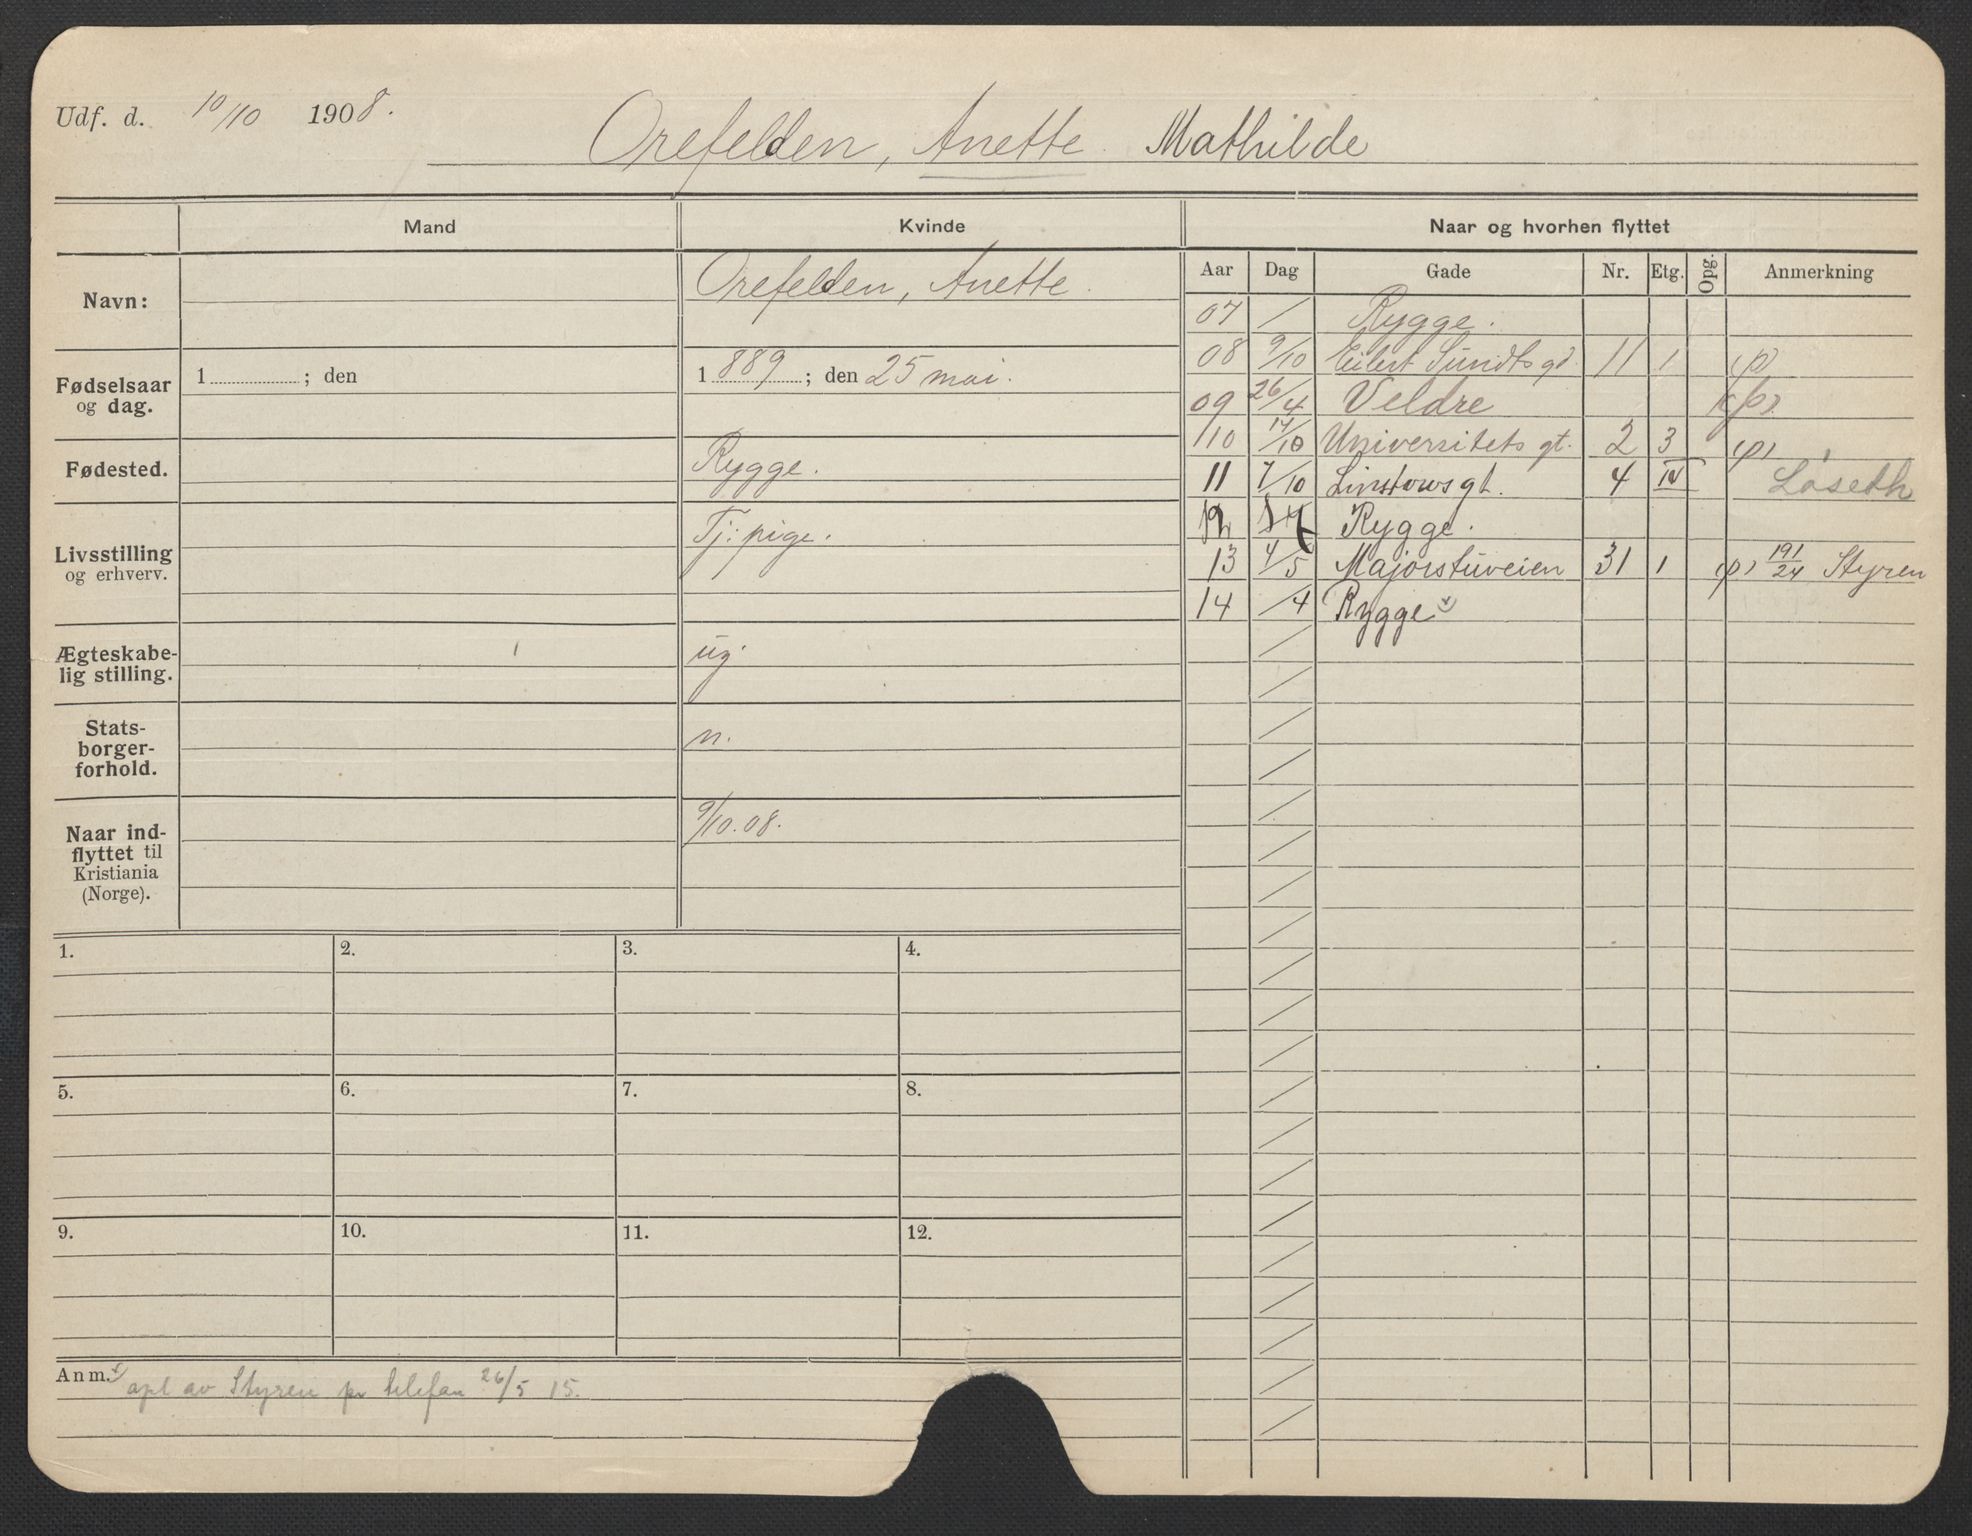 Udf. d. 10/10 1908.
Orefelden, Anette Mathilde
Mand
Kvinde
Naar og hvorhen flyttet
Aar Dag Gade Nr. Etg. Opg. Anmerkning
Navn:
Orefelden, Anette.
Fødselsaar
og dag.
1 ; den
1889; den 25 mai.
Fødested.
Rygge.
Livsstilling
og erhverv.
Tj: pige.
Ægteskabe-
lig stilling.
ug.
Stats-
borger-
forhold.
n.
Naar ind-
flyttet til
Kristiania
(Norge).
9/10.08.
07 / Rygge.
08 9/10 Eilert Sundts gd. 11 1 (p)
09 26/4 Veldre (p)
10 14/10 Universitets gt. 2 3 (p)
11 7/10 Linstows gt. 4 IV Løseth
12 Rygge.
13 4/5 Majorstuveien 31 1 (p) 191/24 Styren
14 /4 Rygge x)
1.
2.
3.
4.
5.
6.
7.
8.
9.
10.
11.
12.
Anm. x) opl av Styren pr telefon 26/5 15.